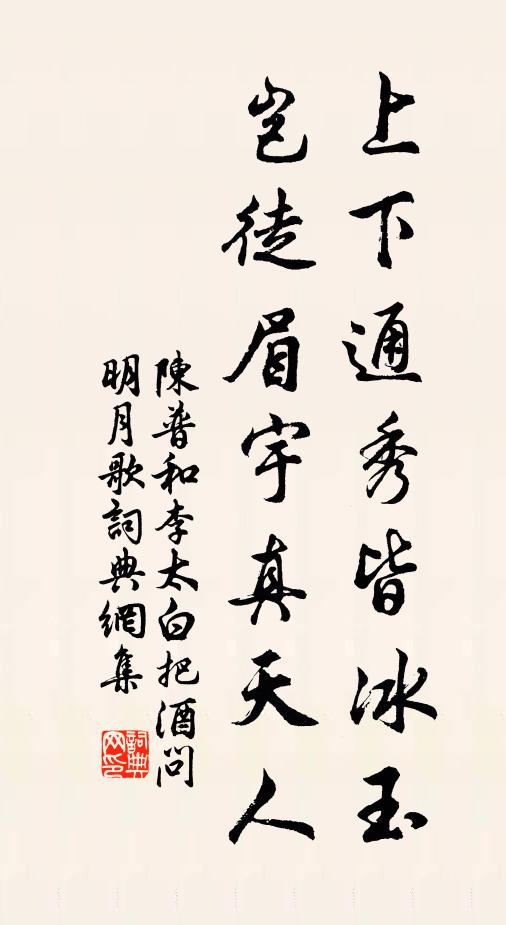 上下通秀皆冰玉
豈徒眉宇真天人
陳普和李太白把酒問
明月歌詞典網集
詞典
网印